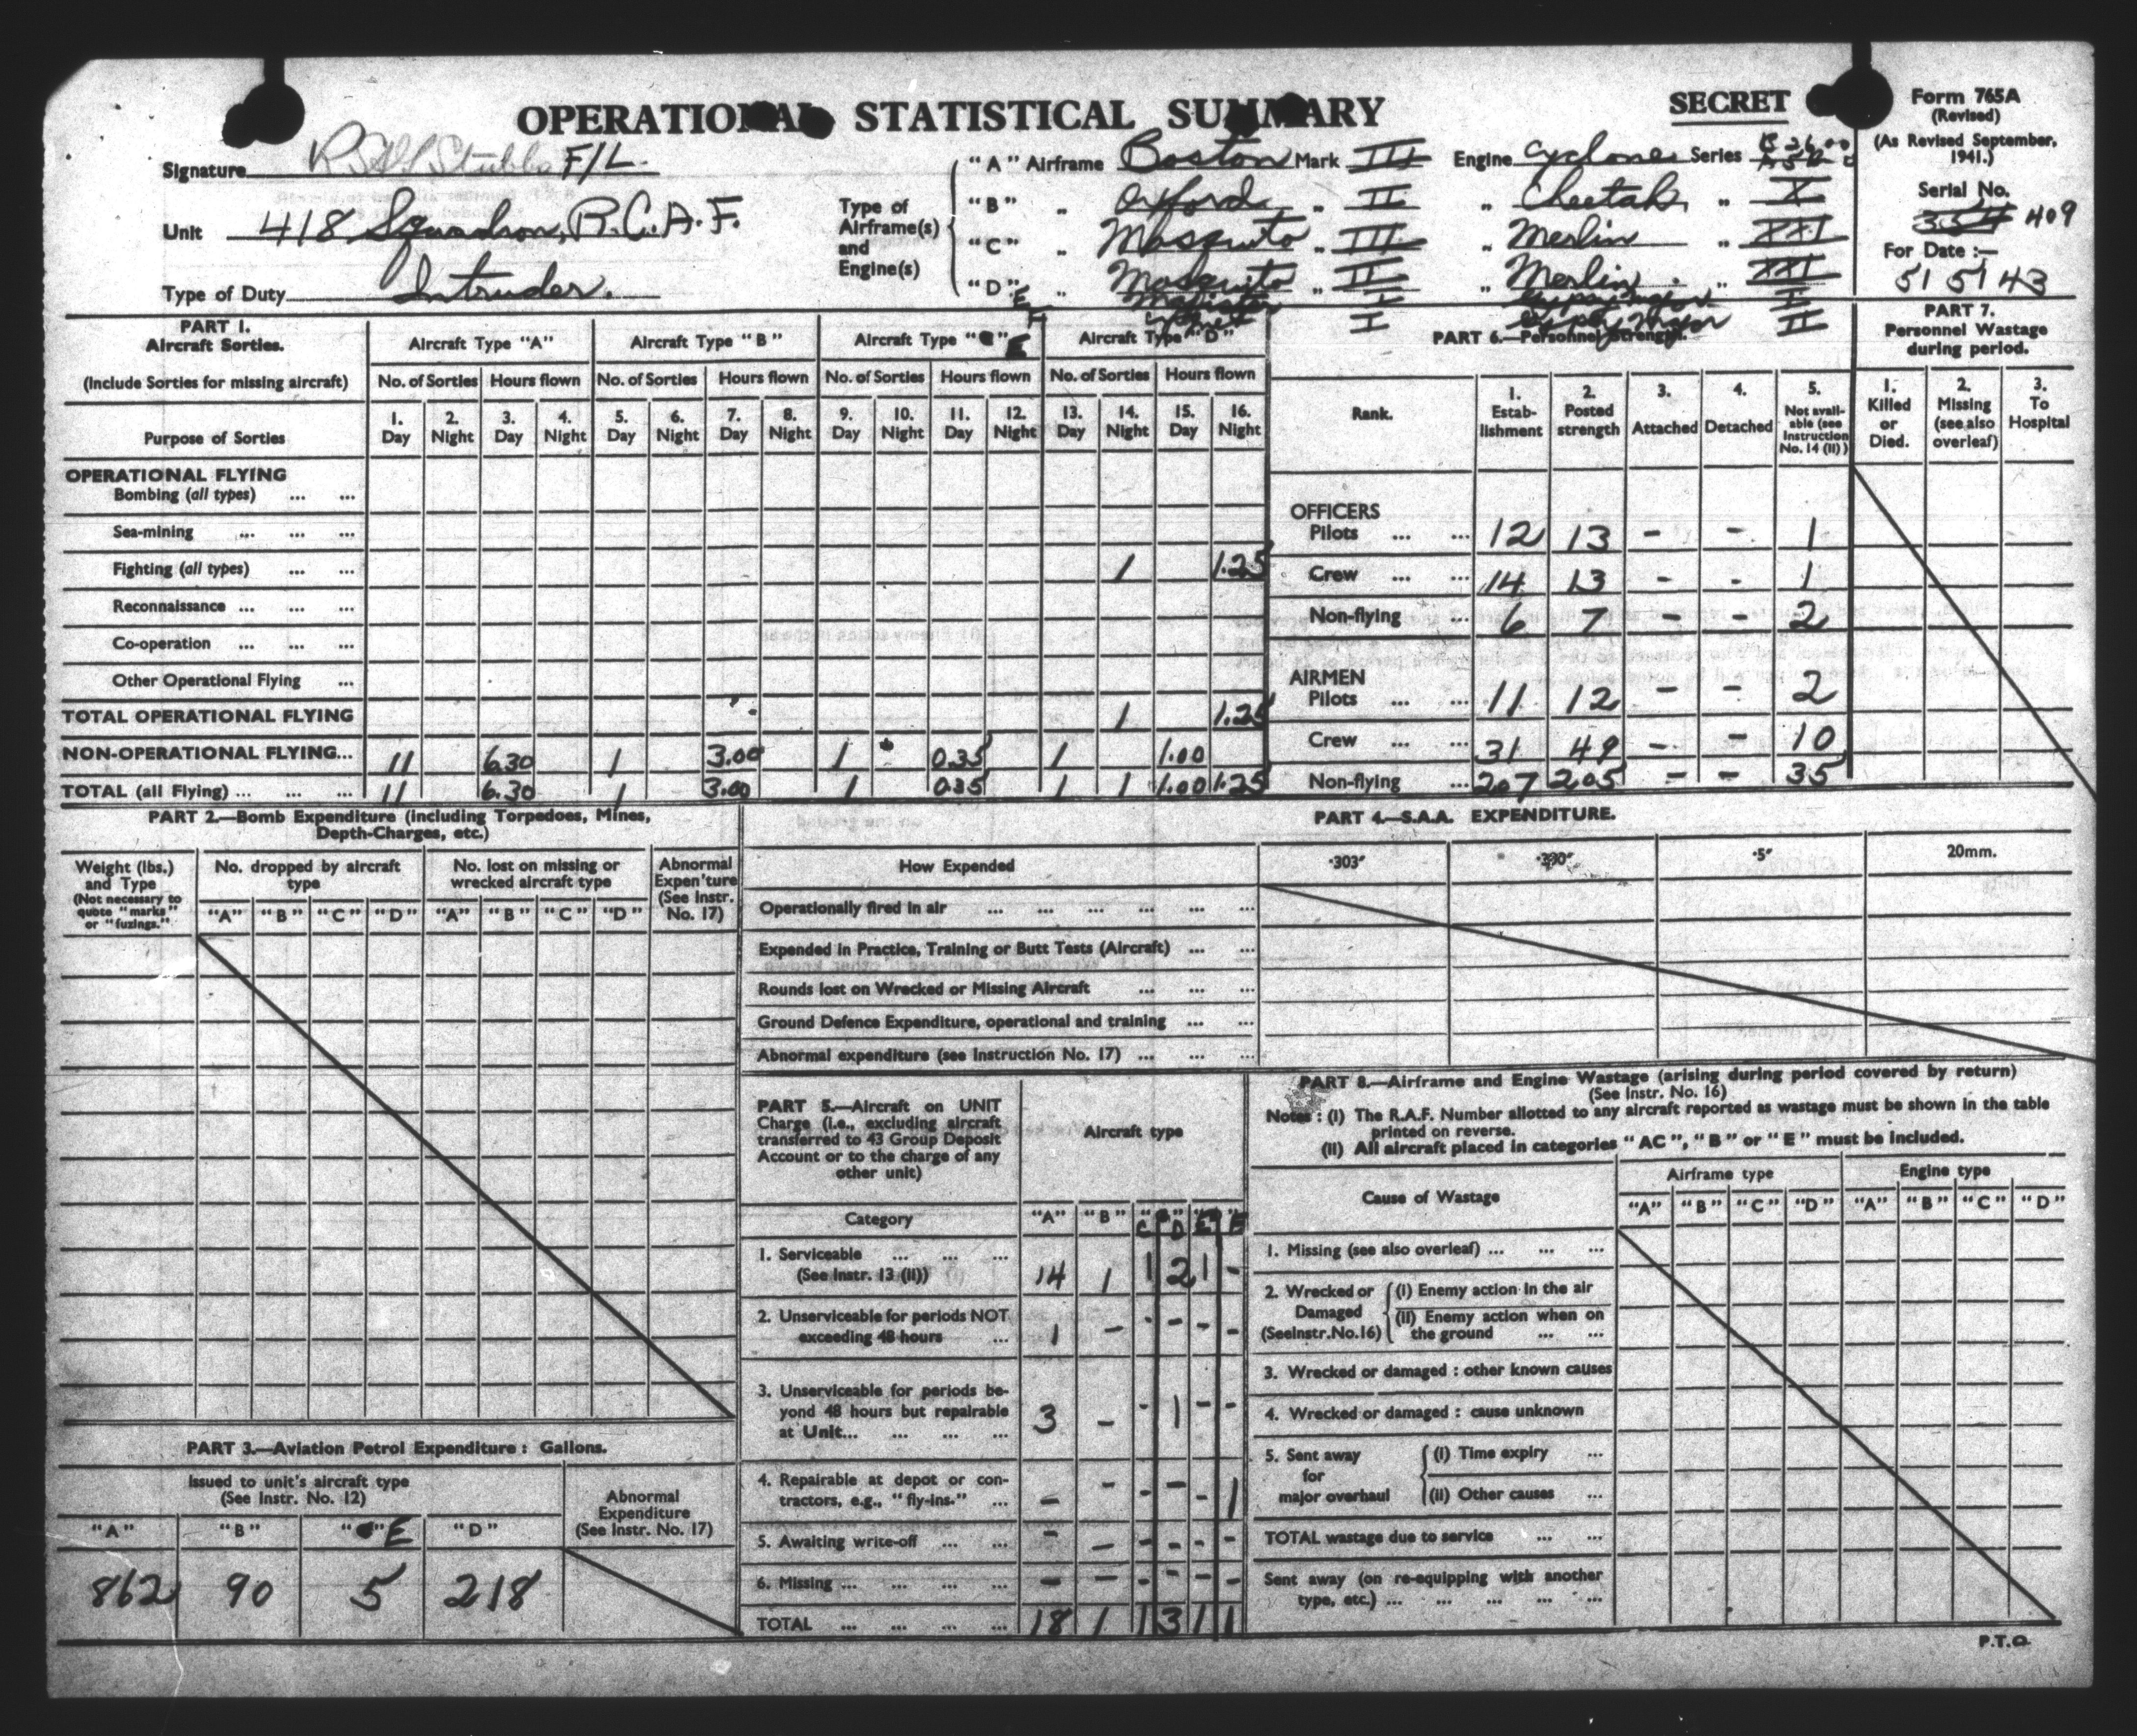 OPERATIONAL STATISTICAL SUMMARY
SECRET
Form 765A
(Revised)
(As Revised September, 1941.)
Serial No.
409
For Date :—
5/5/43
Signature Stubbs F/L.
Unit 418 Squadron, R.C.A.F.
Type of Duty Intruder.
Type of Airframe(s) and Engine(s)
"A" Airframe Boston Mark III Engine Cyclone Series
"B" „ Oxford „ II „ Cheetah „ X
"C" „ Mosquito „ III „ Merlin „ XXI
"D" „ Mosquito „ II „ Merlin „ XXI
E Magister I I
F I II
PART 1.
Aircraft Sorties.
(Include Sorties for missing aircraft)
Aircraft Type "A" Aircraft Type "B" Aircraft Type "E Aircraft Type "D"
No. of Sorties Hours flown No. of Sorties Hours flown No. of Sorties Hours flown No. of Sorties Hours flown
Purpose of Sorties
1. Day 2. Night 3. Day 4. Night 5. Day 6. Night 7. Day 8. Night 9. Day 10. Night 11. Day 12. Night 13. Day 14. Night 15. Day 16. Night
OPERATIONAL FLYING
Bombing (all types) ... ...
Sea-mining ... ... ...
Fighting (all types) ... ... 1 1.25
Reconnaissance ... ... ...
Co-operation ... ... ...
Other Operational Flying ...
TOTAL OPERATIONAL FLYING 1 1.25
NON-OPERATIONAL FLYING... 11 6.30 1 3.00 1 0.35 1 1.00
TOTAL (all Flying) ... ... ... 11 6.30 1 3.00 1 0.35 1 1 1.00 1.25
PART 6.—Personnel Strength.
Rank.
1. Establishment 2. Posted strength 3. Attached 4. Detached 5. Not available (see Instruction No. 14 (II))
OFFICERS
Pilots ... ... 12 13 - - 1
Crew ... ... 14 13 - - 1
Non-flying ... 6 7 - - 2
AIRMEN
Pilots ... ... 11 12 - - 2
Crew ... ... 31 49 - - 10
Non-flying ... 207 205 - - 35
PART 7.
Personnel Wastage during period.
1. Killed or Died. 2. Missing (see also overleaf) 3. To Hospital
PART 2.—Bomb Expenditure (including Torpedoes, Mines, Depth-Charges, etc.)
Weight (lbs.) and Type (Not necessary to quote "marks" or "fuzings."
No. dropped by aircraft type
No. lost on missing or wrecked aircraft type
Abnormal Expen'ture (See Instr. No. 17)
"A" "B" "C" "D" "A" "B" "C" "D"
PART 3.—Aviation Petrol Expenditure : Gallons.
Issued to unit's aircraft type
(See Instr. No. 12)
Abnormal Expenditure (See Instr. No. 17)
"A" "B" "E "D"
862 90 5 218
PART 4.—S.A.A. EXPENDITURE.
How Expended ·303″ ·5″ 20mm.
Operationally fired in air ... ... ... ... ... ...
Expended in Practice, Training or Butt Tests (Aircraft) ... ...
Rounds lost on Wrecked or Missing Aircraft ... ... ...
Ground Defence Expenditure, operational and training ... ...
Abnormal expenditure (see Instruction No. 17) ... ... ...
PART 5.—Aircraft on UNIT
Charge (i.e., excluding aircraft
transferred to 43 Group Deposit
Account or to the charge of any
other unit)
Aircraft type
Category "A" "B" C D E F
1. Serviceable ... ... ...
(See Instr. 13 (II)) 14 1 1 2 1 -
2. Unserviceable for periods NOT
exceeding 48 hours ... 1 - - - - -
3. Unserviceable for periods be-
yond 48 hours but repairable
at Unit... ... ... ... 3 - - 1 - -
4. Repairable at depot or con-
tractors, e.g., "fly-ins." ... - - - - - 1
5. Awaiting write-off ... ... - - - - - -
6. Missing ... ... ... ... - - - - - -
TOTAL ... ... ... ... 18 1 1 3 1 1
PART 8.—Airframe and Engine Wastage (arising during period covered by return)
(See Instr. No. 16)
Notes : (I) The R.A.F. Number allotted to any aircraft reported as wastage must be shown in the table
printed on reverse.
(II) All aircraft placed in categories "AC", "B" or "E" must be included.
Cause of Wastage
Airframe type Engine type
"A" "B" "C" "D" "A" "B" "C" "D"
1. Missing (see also overleaf) ... ... ...
2. Wrecked or Damaged (See Instr. No. 16)
(I) Enemy action in the air
(II) Enemy action when on the ground ... ...
3. Wrecked or damaged : other known causes
4. Wrecked or damaged : cause unknown
5. Sent away for major overhaul
(I) Time expiry ...
(II) Other causes ...
TOTAL wastage due to service ... ...
Sent away (on re-equipping with another
type, etc.) ... ... ... ... ...
P.T.O.